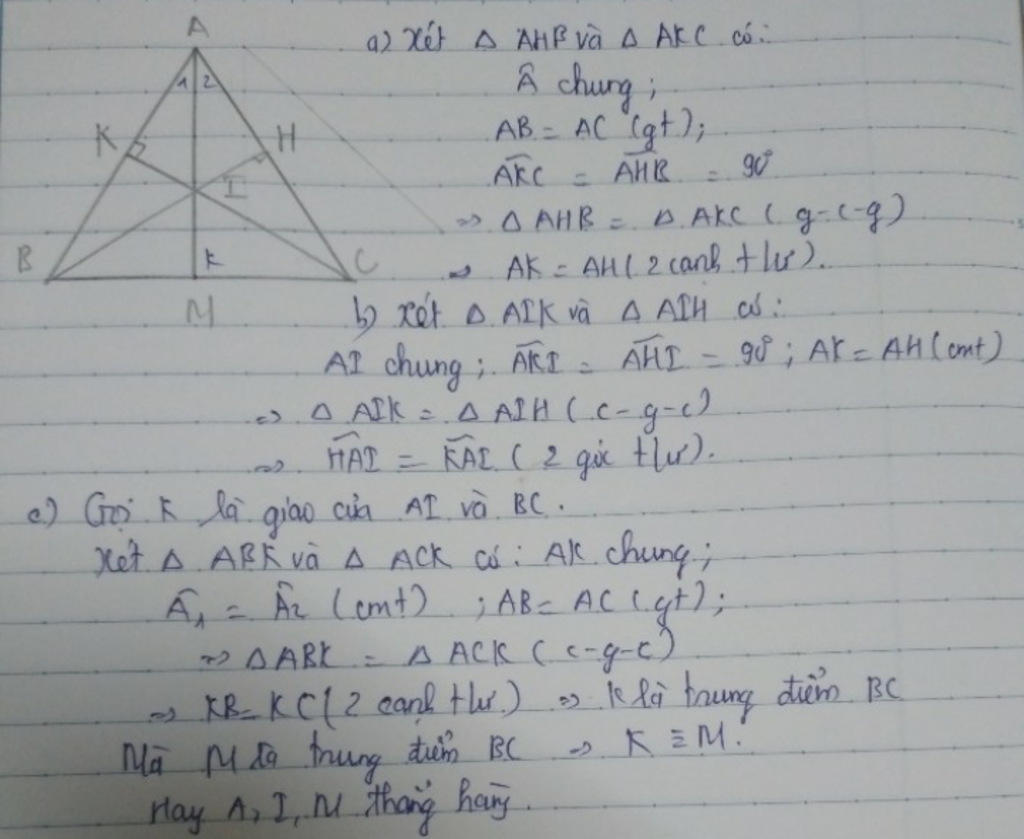 A
1 2
K H
I
B K C
M
a) Xét △ AHB và △ AKC có:
Â chung ;
AB = AC (gt);
\widehat{AKC} = \widehat{AHB} = 90°
=> △ AHB = △ AKC ( g-c-g)
=> AK = AH ( 2 cạnh tlư).
b) Xét △ AIK và △ AIH có:
AI chung ; \widehat{AKI} = \widehat{AHI} = 90° ; AK = AH (cmt)
=> △ AIK = △ AIH ( c-g-c)
=> \widehat{HAI} = \widehat{KAI} ( 2 góc tlư).
c) Gọi K là giao của AI và BC.
Xét △ ABK và △ ACK có: AK chung;
Â₁ = Â₂ (cmt) ; AB = AC (gt);
=> △ ABK = △ ACK ( c-g-c)
=> KB = KC ( 2 cạnh tlư) => K là trung điểm BC
Mà M là trung điểm BC => K ≡ M.
Hay A, I, M thẳng hàng.